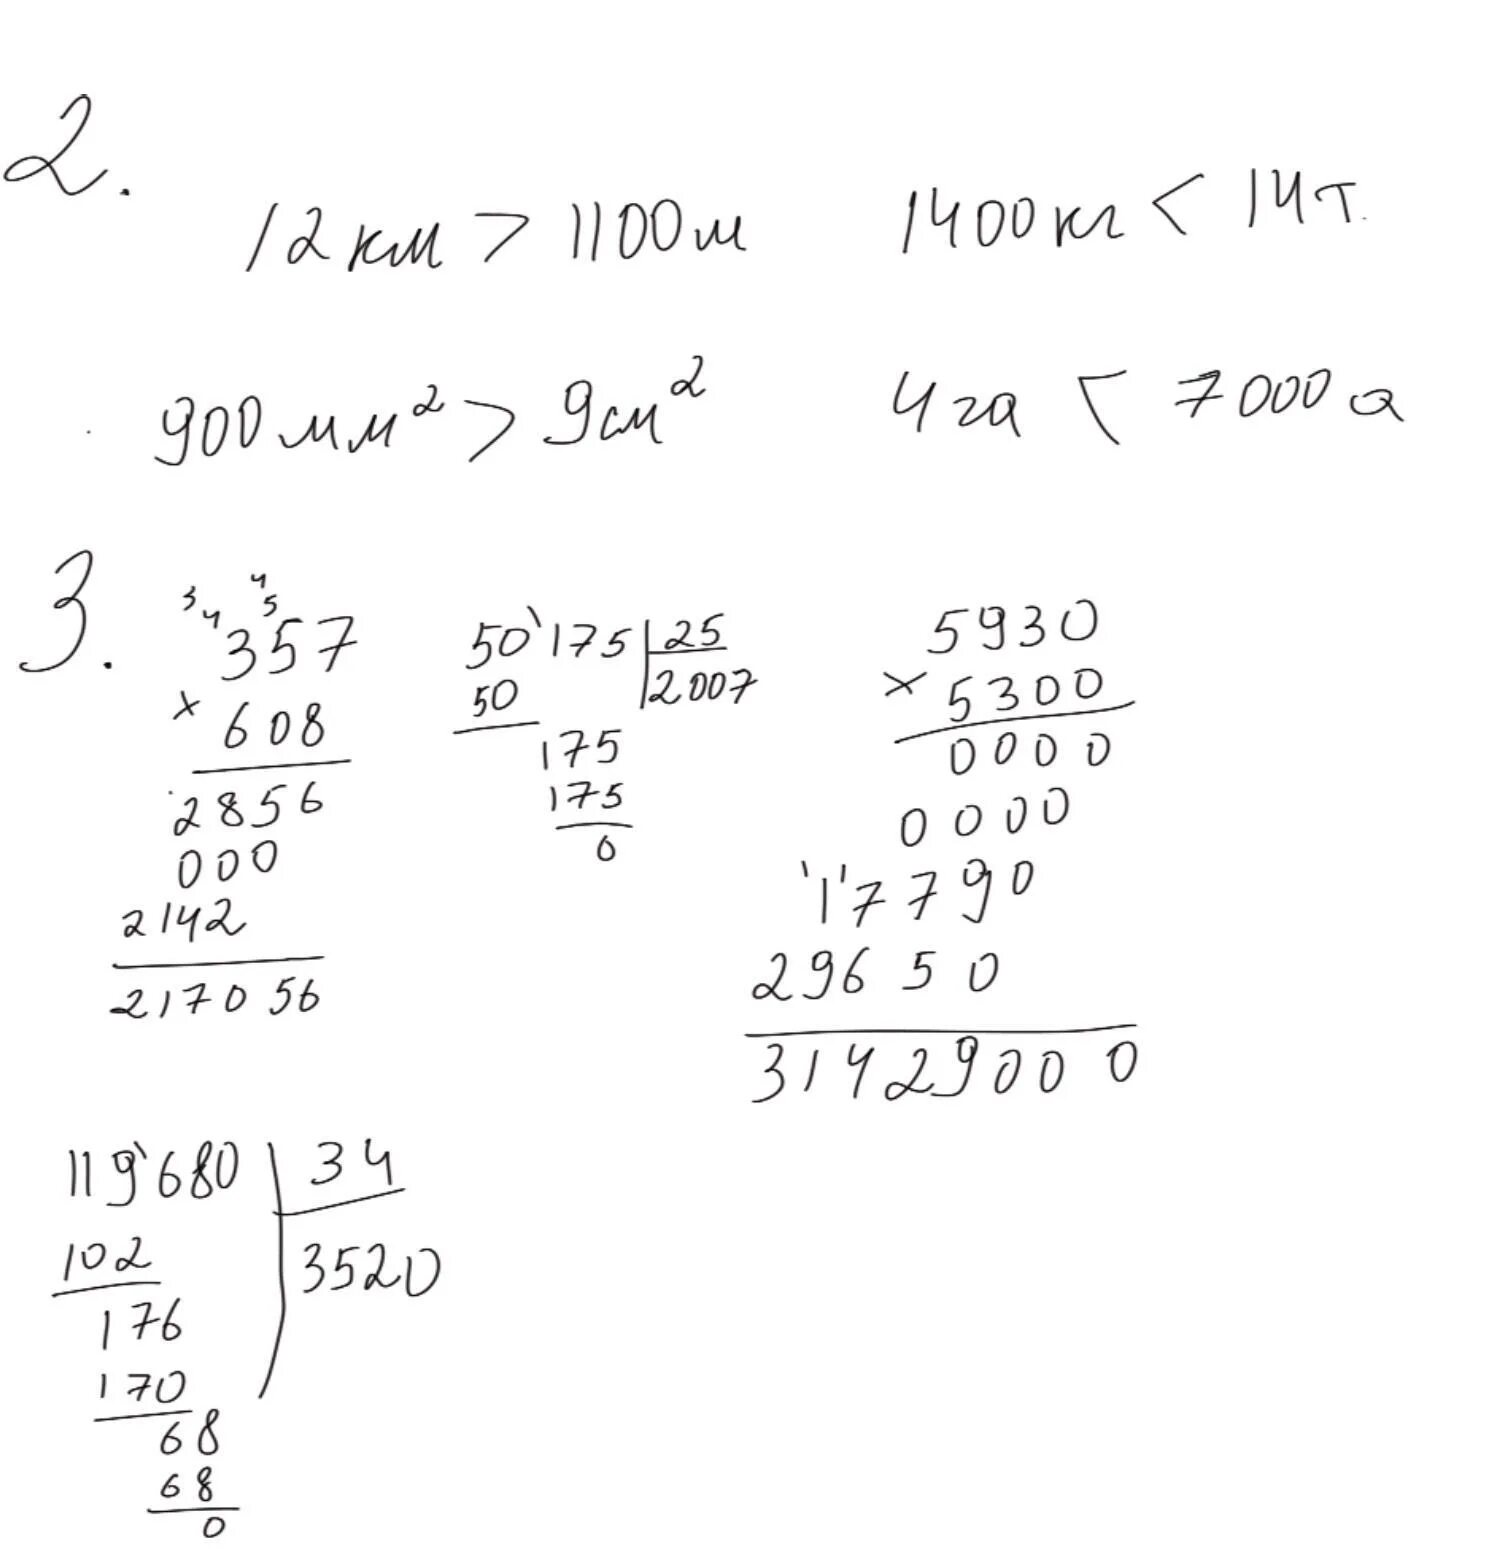 2.
12 км > 1100 м 1400 кг < 14 т.
900 мм² > 9 см² 4 га < 7000 а
3.
3 4 4 5
357
× 608
2856
000
2142
217056
50'175 | 25
50 | 2007
175
175
0
5930
× 5300
0000
0000
'1'7790
29650
31429000
119'680 | 34
102 | 3520
176
170
68
68
0